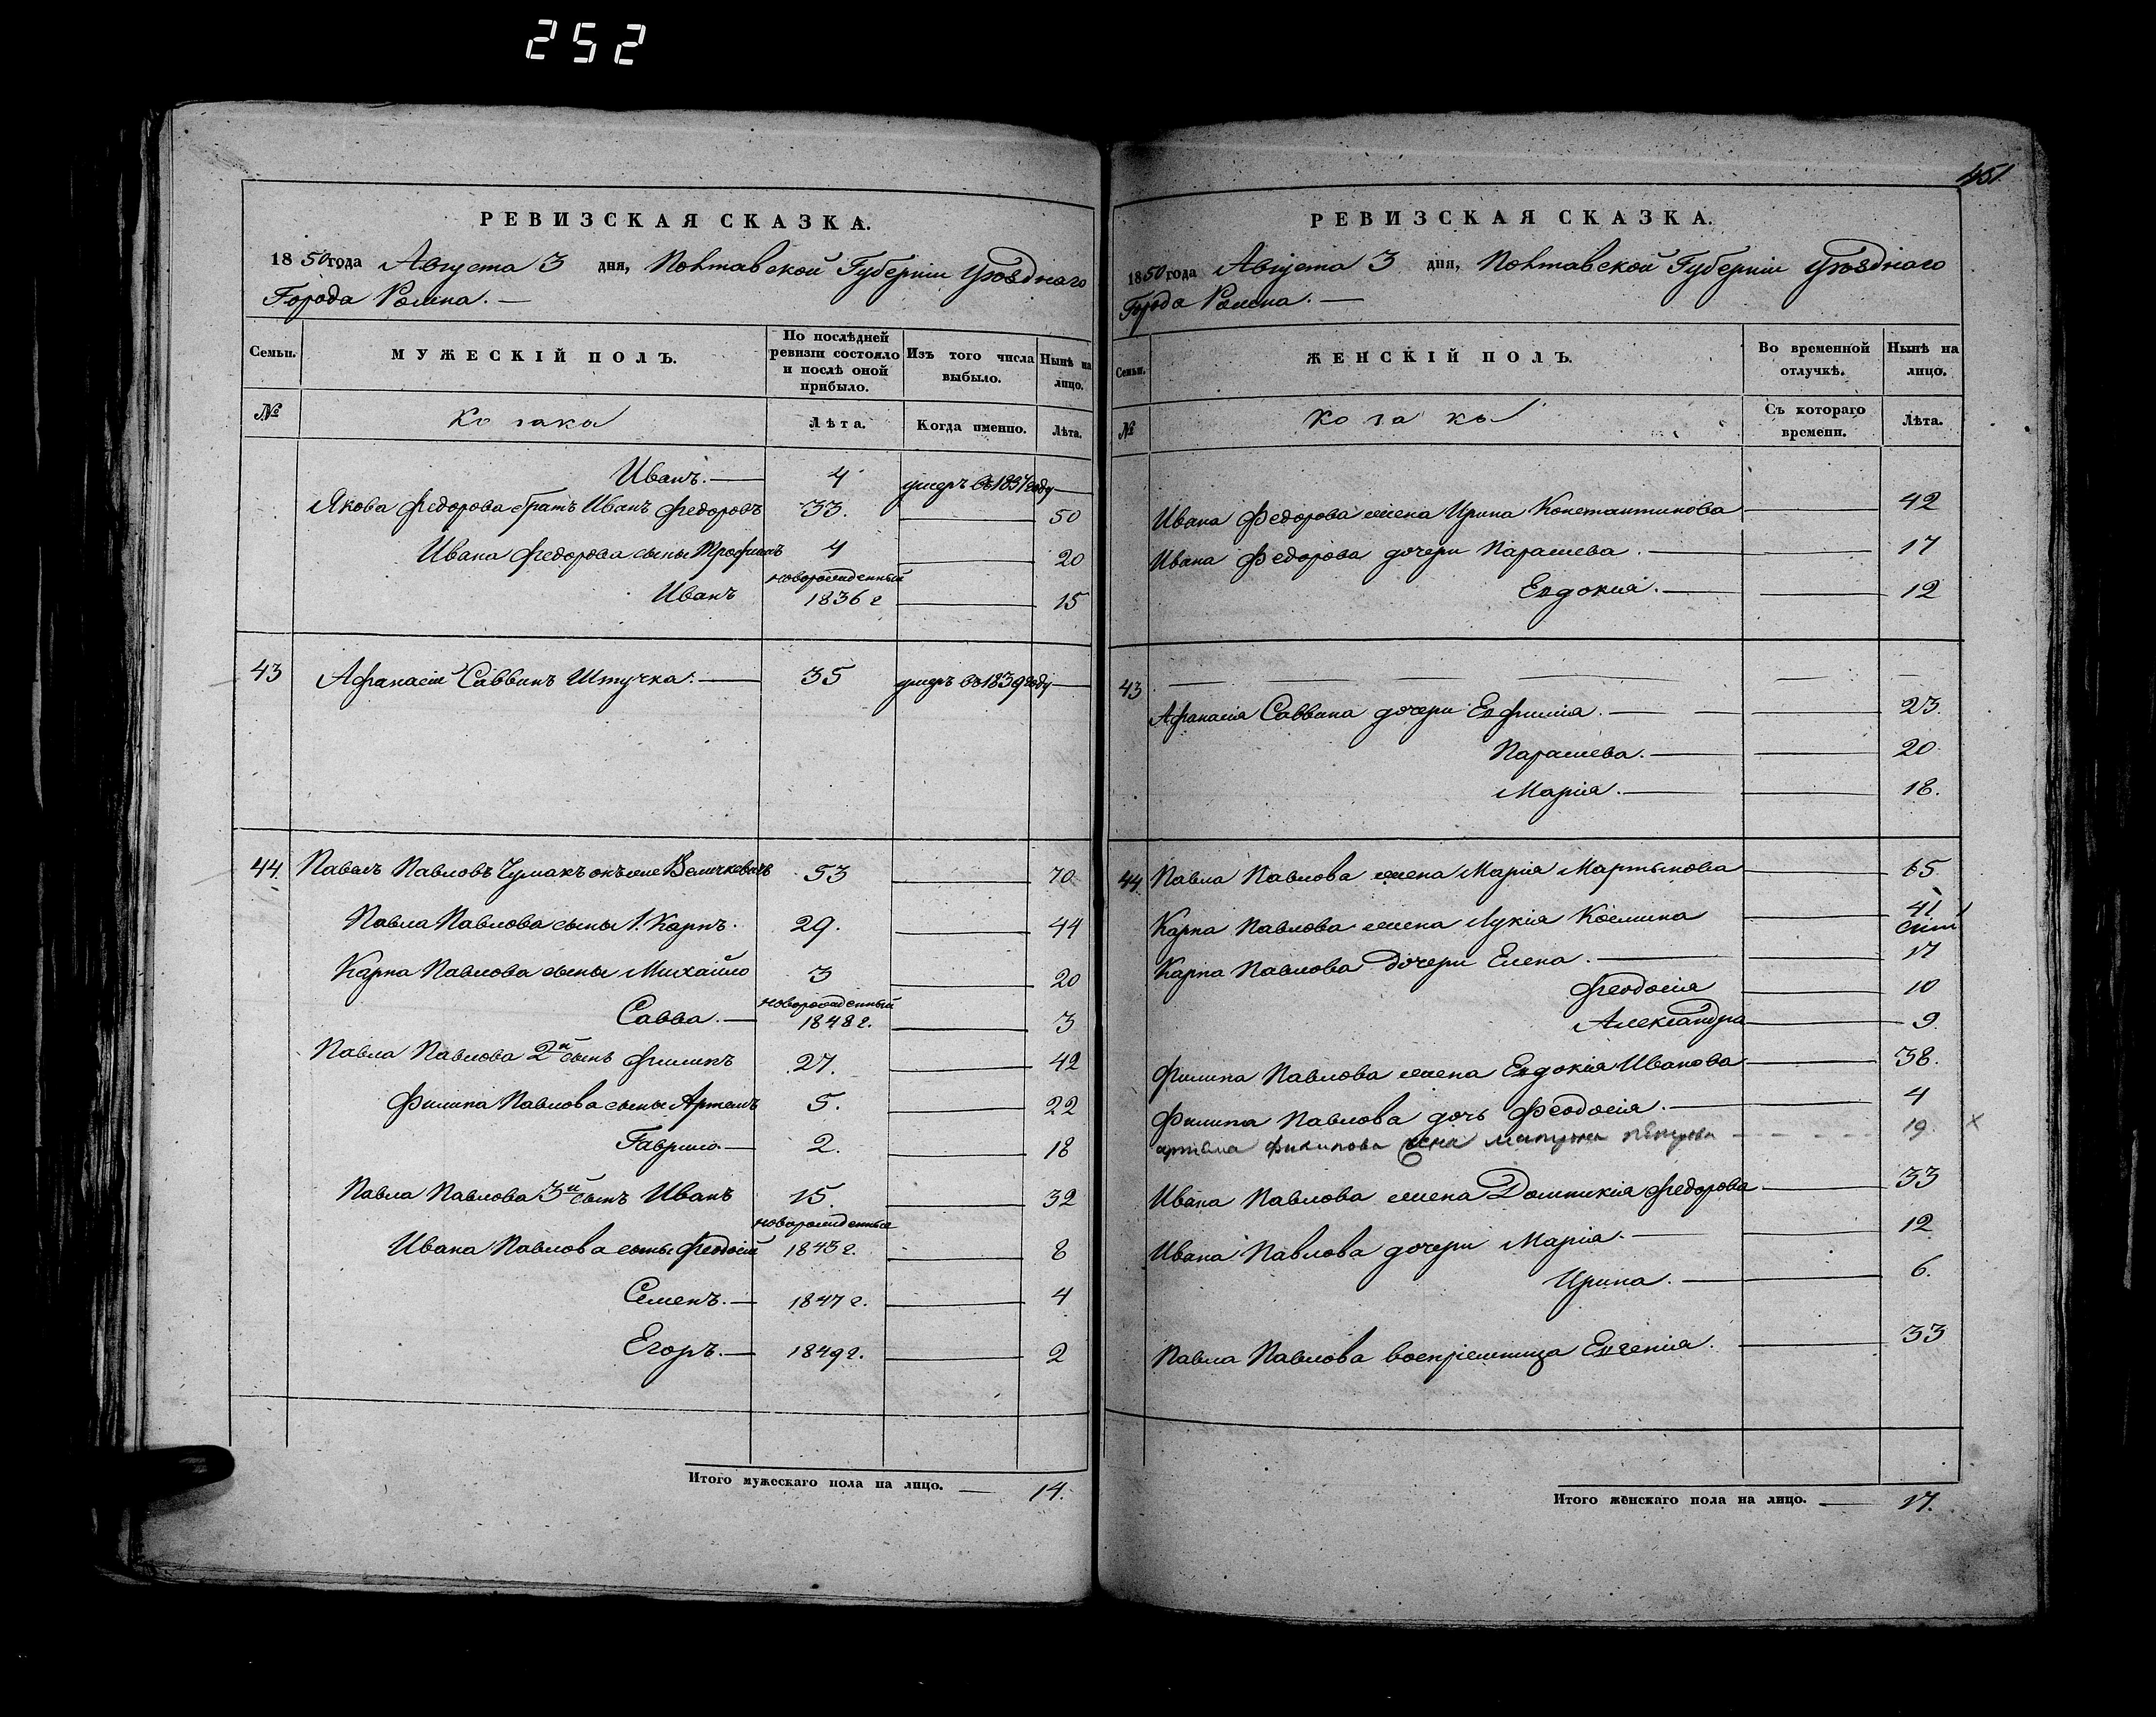 252
РЕВИЗСКАЯ СКАЗКА.
1850 года Августа 3 дня, Полтавской Губернии Уѣзднаго
Города Ромна. —
Семьи. МУЖЕСКІЙ ПОЛЪ. По послѣдней ревизіи состояло и послѣ оной прибыло. Изъ того числа выбыло. Нынѣ на лицо.
№ Козаки Лѣта. Когда именно. Лѣта.
Иванъ. — 4 умеръ въ 1837 году —
Якова Федорова братъ Иванъ Федоровъ 33. — 50
Ивана Федорова сыны Трофимъ 4 — 20
Иванъ новорожденный 1836 г — 15
43 Афанасій Саввинъ Штучка. — 35 умеръ въ 1839 году —
44. Павелъ Павловъ Чумакъ онъ же Величковъ 53 — 70
Павла Павлова сыны 1. Карпъ. 29. — 44
Карпа Павлова сыны Михайло 3 — 20
Савва. — новорожденный 1848 г. — 3
Павла Павлова 2й сынъ Филипъ 27. — 42
Филипа Павлова сыны Артемъ 5. — 22
Гаврило — 2. — 18
Павла Павлова 3й сынъ Иванъ 15. — 32
Ивана Павлова сыны Феодосій новорожденные 1843 г. — 8
Семенъ. — 1847 г. — 4
Егоръ. — 1849 г. — 2
Итого мужескаго пола на лицо. — 14.
451.
РЕВИЗСКАЯ СКАЗКА.
1850 года Августа 3 дня, Полтавской Губерніи Уѣзднаго
Города Ромна. —
Семьи. ЖЕНСКІЙ ПОЛЪ. Во временной отлучкѣ. Нынѣ на лицо.
№ Козаки Съ котораго времени. Лѣта.
Ивана Федорова жена Ирина Константинова — 42
Ивана Федорова дочери Парасква. — 17
Евдокія. — 12
43 — — — —
Афанасія Саввина дочери Евфимія. — 23.
Парасева. — 20
Марія. — 18.
44 Павла Павлова жена Марія Мартынова — 65
Карпа Павлова жена Лукія Космина — 41
Карпа Павлова дочери Елена. — 17
Феодосія — 10
Александра — 9.
Филипа Павлова жена Евдокія Иванова — 38.
Филипа Павлова дочь Феодосія. — 4
артема Филипова жена Петрова — 19. х
Ивана Павлова жена Домникія Федорова — 33
Ивана Павлова дочери Марія. — 12
Ирина. — 6.
Павла Павлова воспріемница Евгенія. — 33
Итого женскаго пола на лицо. — 17.